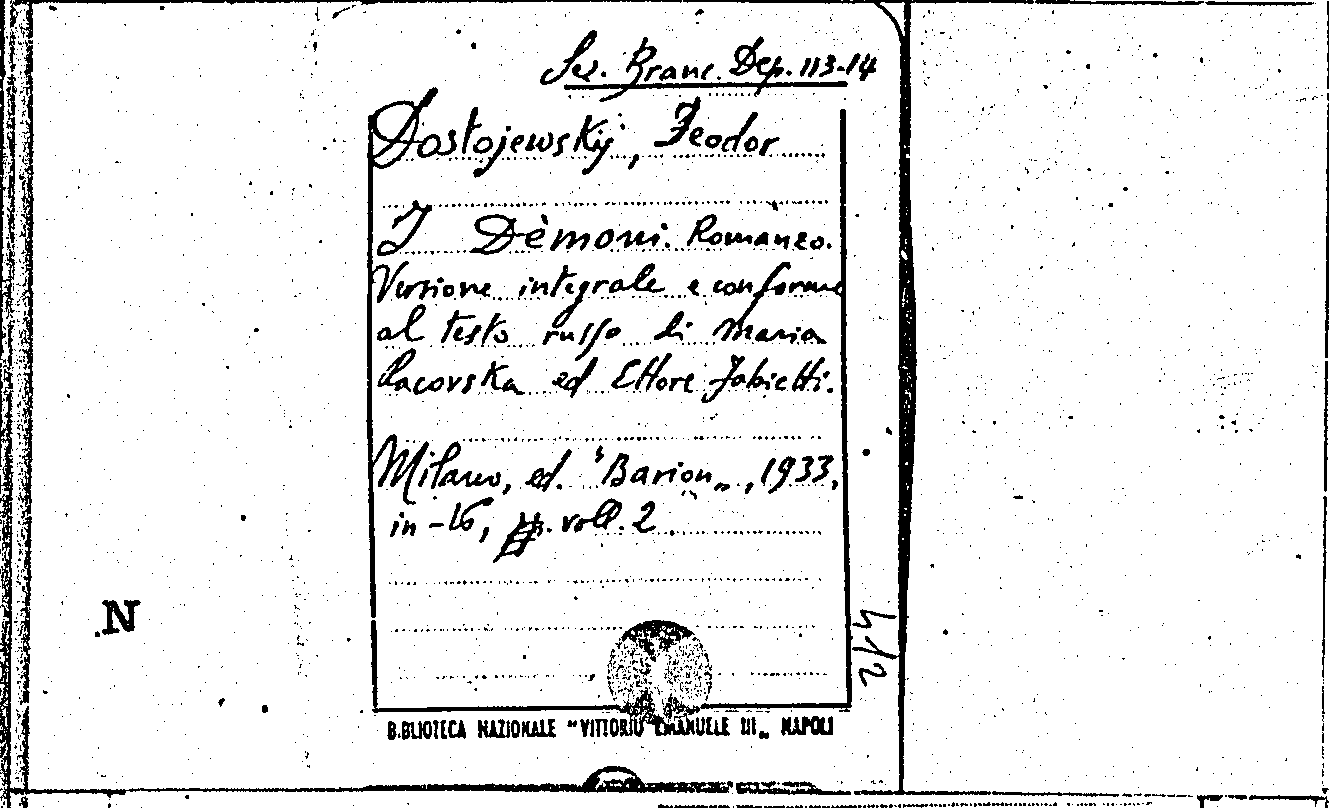 Sez. Branc. Dep. 113-14
Dostojewskij, Feodor
I Dèmoni. Romanzo.
Versione integrale e conforme
al testo russo di Maria
Racovska ed Ettore Fabietti.
Milano, ed. "Barion„, 1933,
in-16, pp. voll. 2
4/2
N
B.BLIOTECA NAZIONALE "VITTORIO EMANUELE III„ NAPOLI